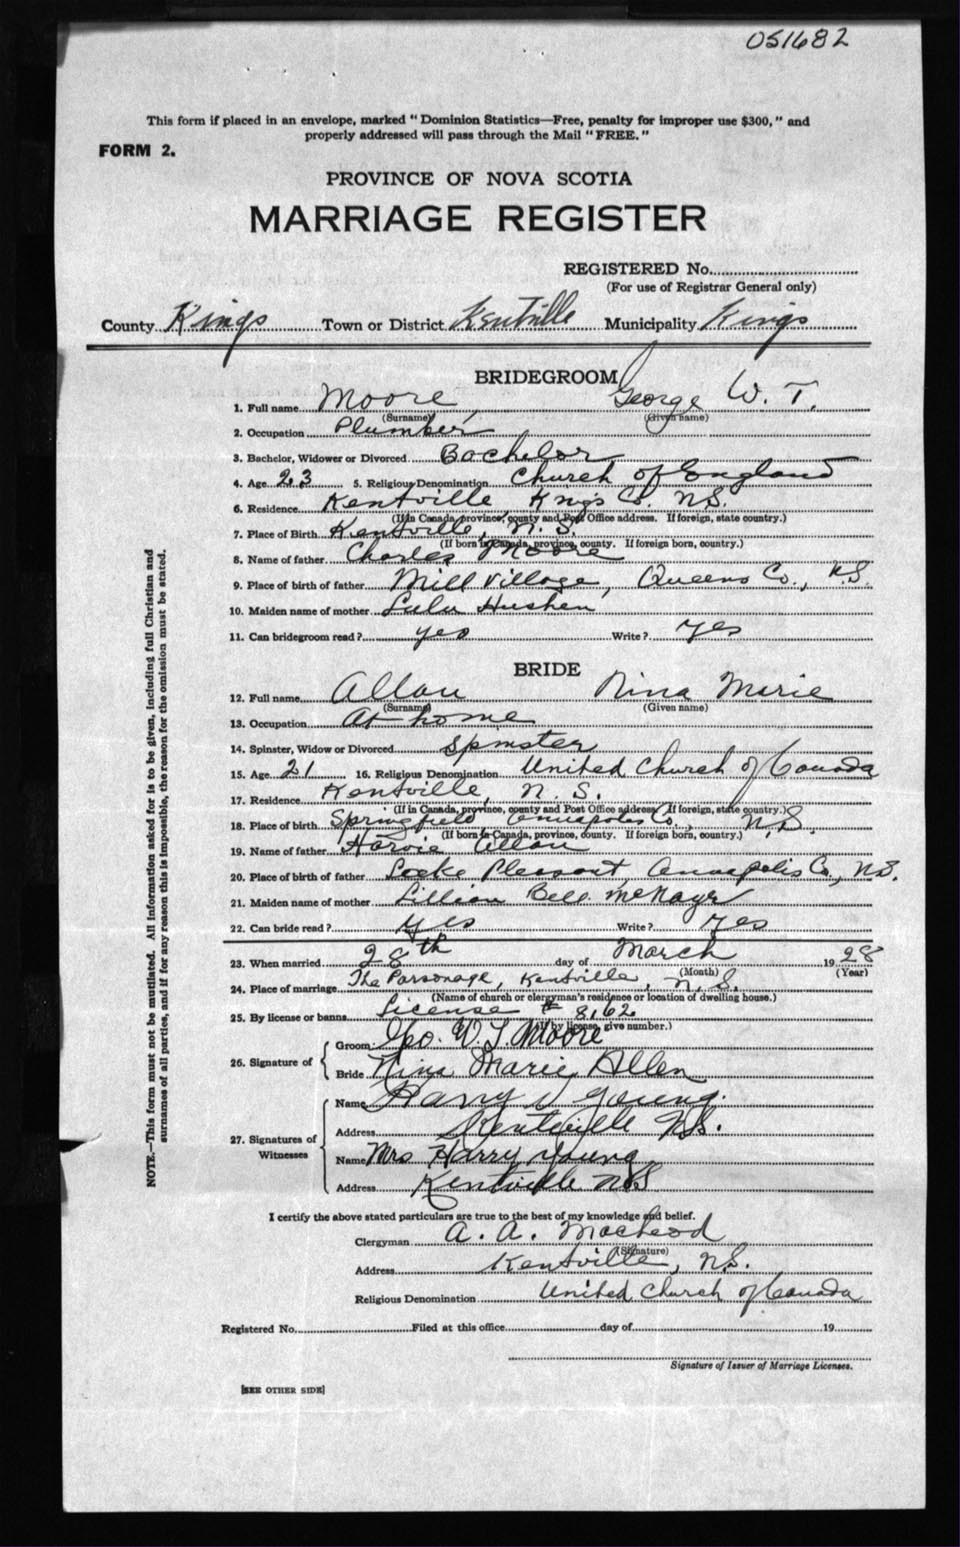 051682
This form if placed in an envelope, marked "Dominion Statistics—Free, penalty for improper use $300," and
properly addressed will pass through the Mail "FREE."
FORM 2.
PROVINCE OF NOVA SCOTIA
MARRIAGE REGISTER
REGISTERED No.
(For use of Registrar General only)
County Kings Town or District Kentville Municipality Kings
BRIDEGROOM
1. Full name Moore, George W. T.
(Surname) (Given name)
2. Occupation Plumber
3. Bachelor, Widower or Divorced Bachelor
4. Age 23 5. Religious Denomination Church of England
6. Residence Kentville Kings Co. N.S.
(If in Canada, province, county and Post Office address. If foreign, state country.)
7. Place of Birth Kentville, N. S.
(If born in Canada, province, county. If foreign born, country.)
8. Name of father Charles Moore
9. Place of birth of father Mill Village, Queens Co., N.S.
10. Maiden name of mother Lulu
11. Can bridegroom read? yes Write? yes
BRIDE
12. Full name Allan Nina Marie
(Surname) (Given name)
13. Occupation At home
14. Spinster, Widow or Divorced Spinster
15. Age 21 16. Religious Denomination United Church of Canada
17. Residence Kentville, N. S.
(If in Canada, province, county and Post Office address. If foreign, state country.)
18. Place of birth Springfield Annapolis Co., N.S.
(If born in Canada, province, county. If foreign born, country.)
19. Name of father Harvie Allan
20. Place of birth of father Pleasant, Annapolis Co., N.S.
21. Maiden name of mother Lillian Bell
22. Can bride read? yes Write? yes
23. When married 28th day of March 1928
(Month) (Year)
24. Place of marriage The Parsonage, Kentville, N. S.
(Name of church or clergyman's residence or location of dwelling house.)
25. By license or banns License # 8162
(If by license, give number.)
26. Signature of
Groom Geo. W. T. Moore
Bride Nina Marie Allen
27. Signatures of Witnesses
Name Harry Young.
Address Kentville N.S.
Name Mrs Harry Young
Address Kentville N.S
I certify the above stated particulars are true to the best of my knowledge and belief.
Clergyman A. A. MacLeod
(Signature)
Address Kentville, N.S.
Religious Denomination United Church of Canada
Registered No. Filed at this office day of 19
Signature of Issuer of Marriage Licenses.
[SEE OTHER SIDE]
NOTE.—This form must not be mutilated. All information asked for is to be given, including full Christian and
surnames of all parties, and if for any reason this is impossible, the reason for the omission must be stated.